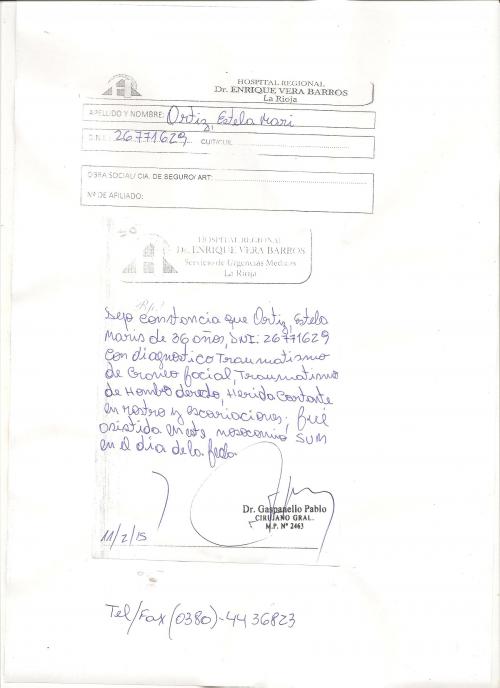 HOSPITAL REGIONAL
Dr. ENRIQUE VERA BARROS
La Rioja
APELLIDO Y NOMBRE: Ortiz, Estela Mari
D.N.I. 26771629 CUIT/CUIL
OBRA SOCIAL/ CIA. DE SEGURO/ ART:
Nº DE AFILIADO:
HOSPITAL REGIONAL
Dr. ENRIQUE VERA BARROS
Servicio de Urgencias Médicas
La Rioja
Dejo constancia que Ortiz, Estela
Maris de 36 años, DNI: 26771629
con diagnostico Traumatismo
de Craneo facial, Traumatismo
de Hombo derecho, Herida Cortante
en rostro y escoriaciones; fué
asistida en este nosocomio SUM
en el dia de la fecha
Dr. Gaspanello Pablo
CIRUJANO GRAL.
M.P. Nº 2463
11/2/15
Tel/Fax (0380)-4436823